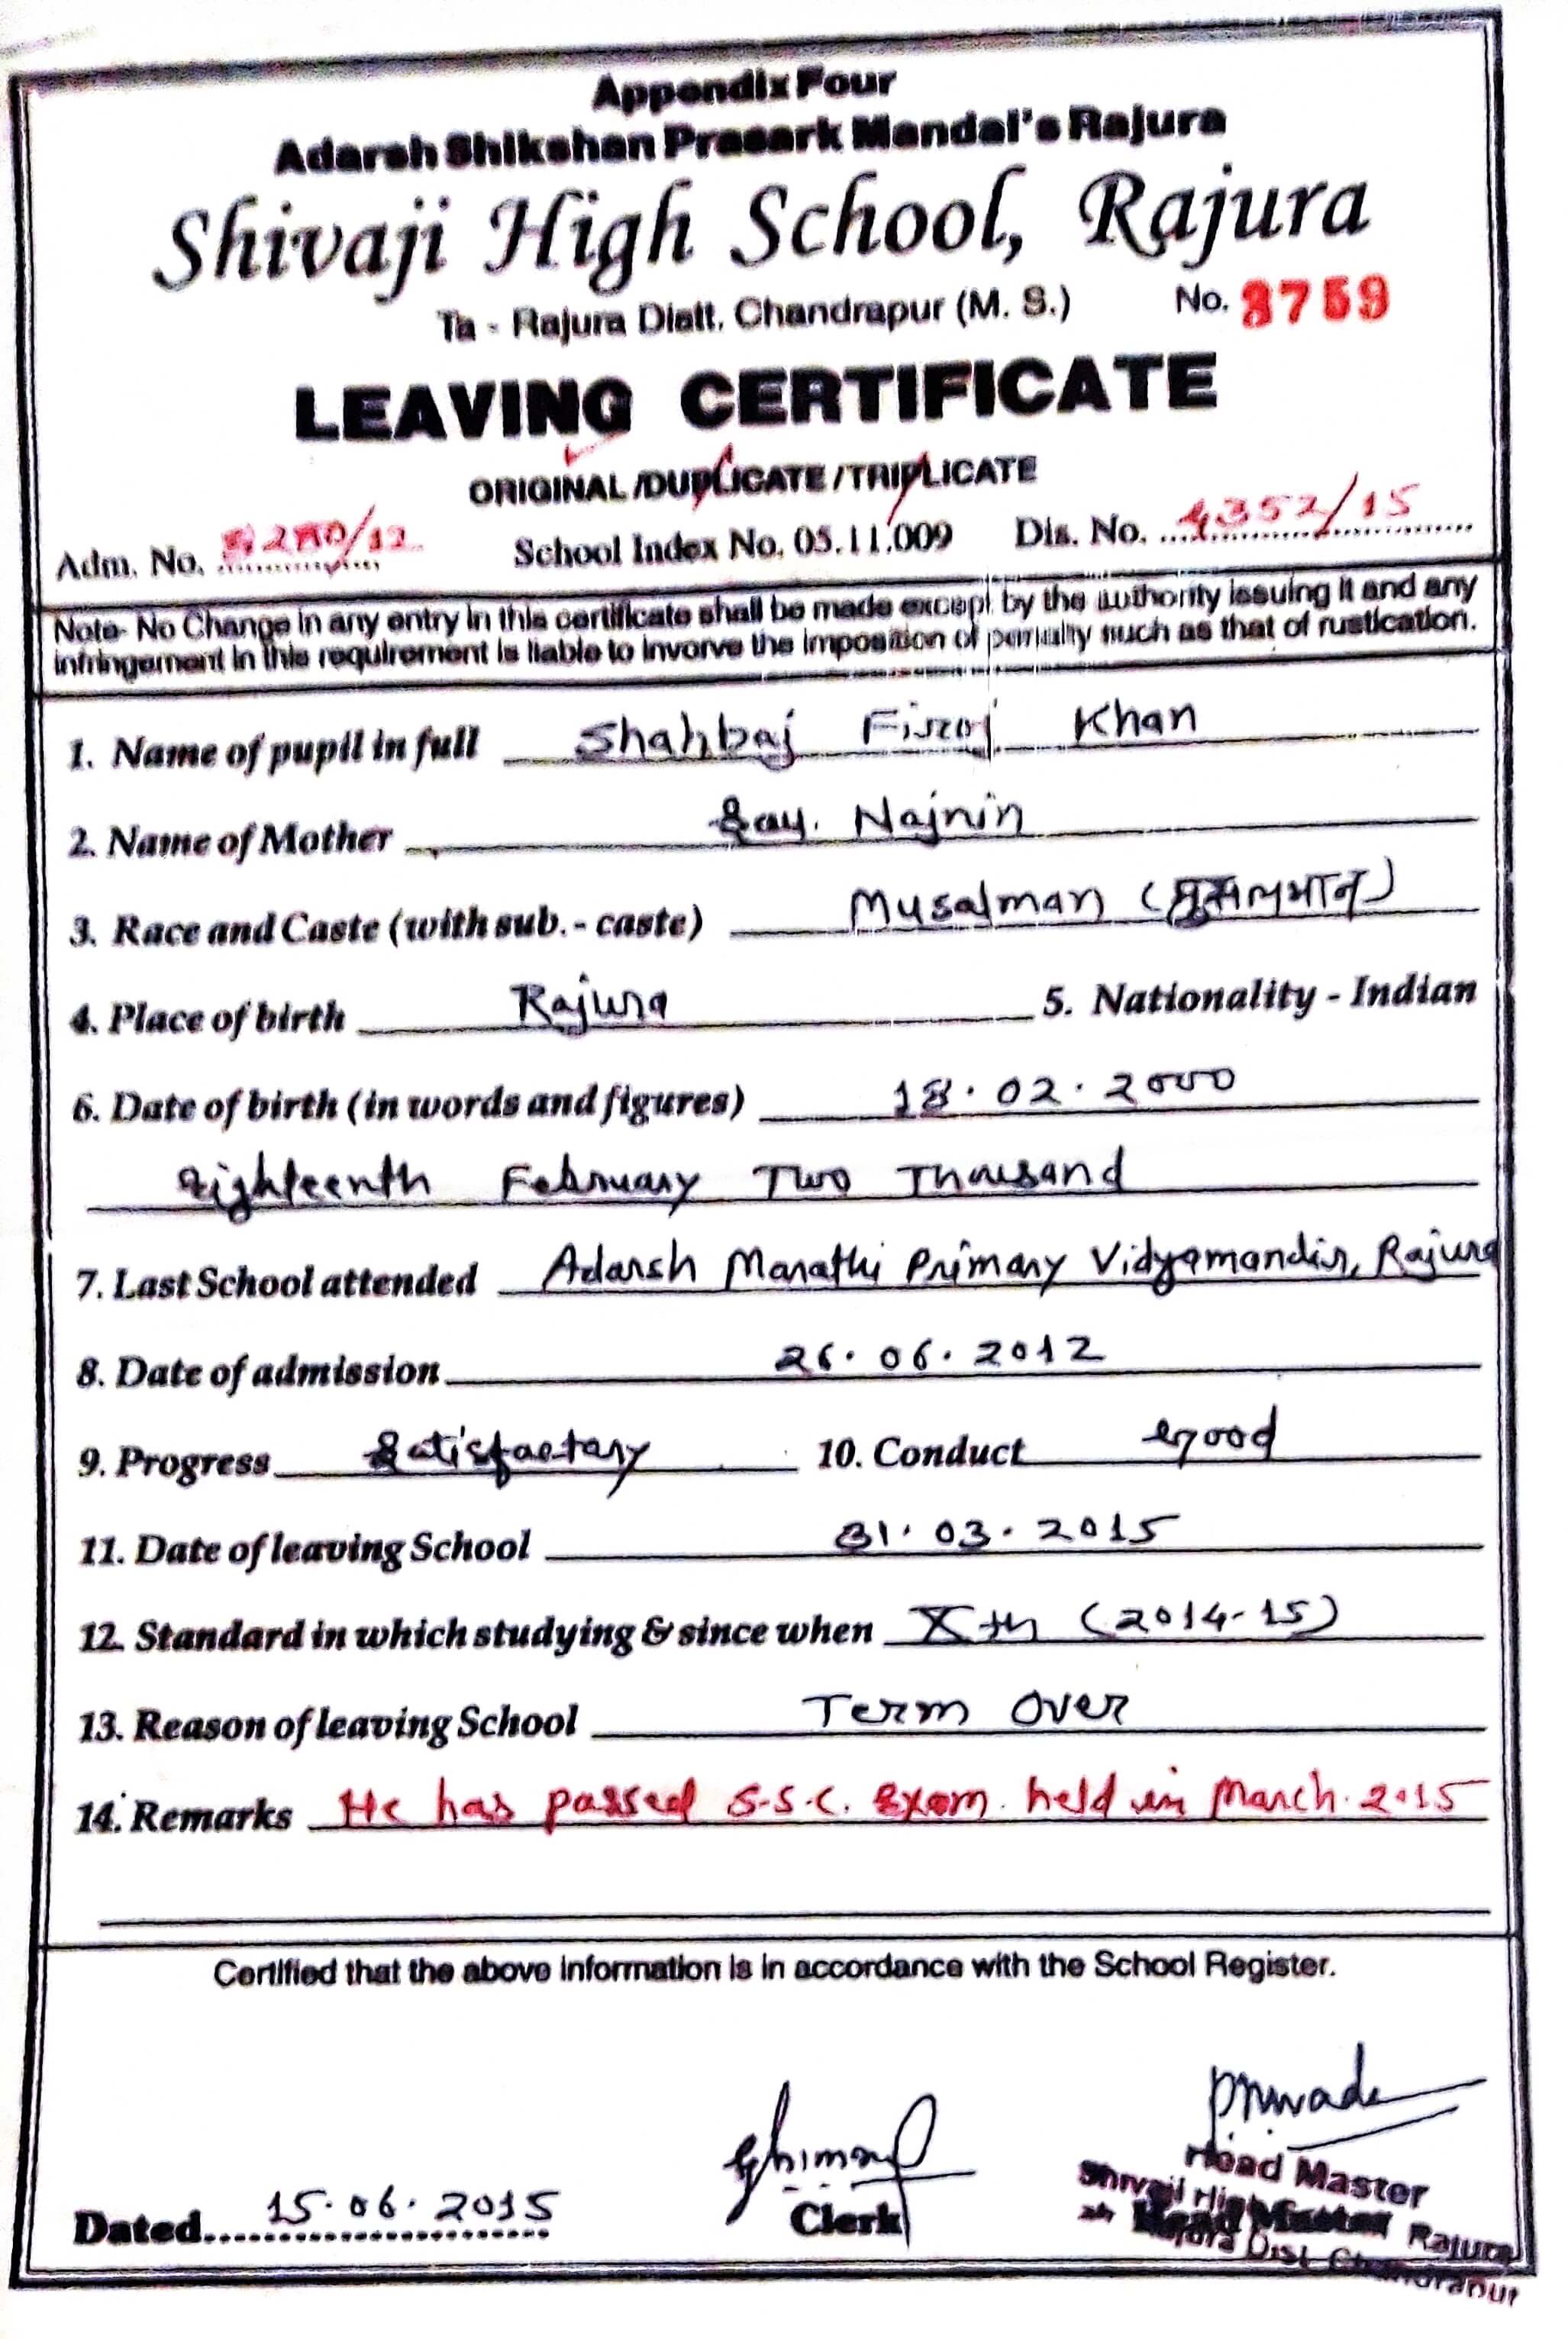 Appendix Four
Adarsh Shikshan Prasark Mandal's Rajura
Shivaji High School, Rajura
Ta - Rajura Distt. Chandrapur (M. S.) No. 3759
LEAVING CERTIFICATE
ORIGINAL /DUPLICATE /TRIPLICATE
Adm. No. School Index No. 05.11.009 Dis. No. 4352/15
Note- No Change in any entry in this certificate shall be made except by the authority issuing it and any
infringement in this requirement is liable to invorve the imposition of penalty such as that of rustication.
1. Name of pupil in full Shahbaj Firoj Khan
2. Name of Mother Sau. Najnin
3. Race and Caste (with sub. - caste) Musalman (मुसलमान)
4. Place of birth Rajura 5. Nationality - Indian
6. Date of birth (in words and figures) 18.02.2000
Eighteenth February Two Thousand
7. Last School attended Adarsh Marathi Primary Vidyamandir, Rajura
8. Date of admission 26.06.2012
9. Progress Satisfactary 10. Conduct Good
11. Date of leaving School 31.03.2015
12. Standard in which studying & since when Xth (2014-15)
13. Reason of leaving School Term Over
14. Remarks He has passed S.S.C. Exam. held in March. 2015
Certified that the above information is in accordance with the School Register.
Dated 15.06.2015 Clerk
Head Master
Shivaji High
Head Master Rajura
Rajura Dist Chandrapur